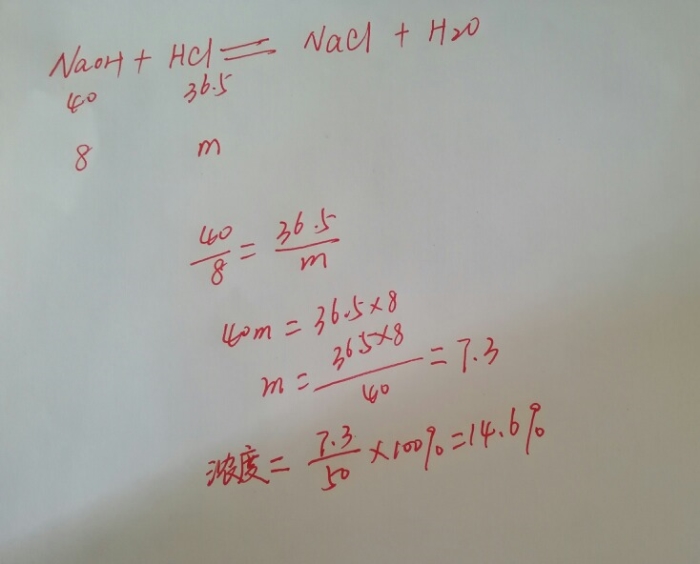 NaOH + HCl = NaCl + H2O
40 36.5
8 m
40/8 = 36.5/m
40m = 36.5×8
m = 36.5×8/40 = 7.3
浓度 = 7.3/50 ×100% = 14.6%